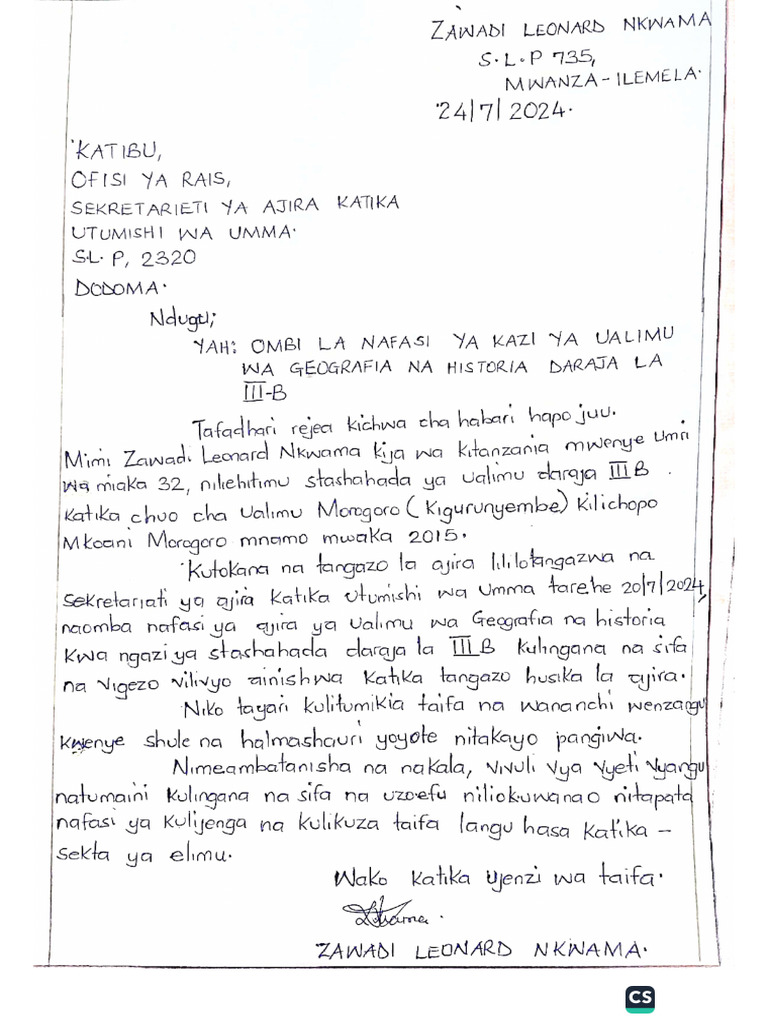 ZAWADI LEONARD NKWAMA
S.L.P 735,
MWANZA-ILEMELA.
24/7/2024.
KATIBU,
OFISI YA RAIS,
SEKRETARIETI YA AJIRA KATIKA
UTUMISHI WA UMMA.
S.L.P, 2320
DODOMA.
Ndugu;
YAH: OMBI LA NAFASI YA KAZI YA UALIMU
WA GEOGRAFIA NA HISTORIA DARAJA LA
III-B
Tafadhari rejea kichwa cha habari hapo juu.
Mimi Zawadi Leonard Nkwama kija wa kitanzania mwenye umri
wa miaka 32, nilihitimu stashahada ya ualimu daraja III B
katika chuo cha Ualimu Morogoro (Kigurunyembe) kilichopo
Mkoani Morogoro mnamo mwaka 2015.
Kutokana na tangazo la ajira lililotangazwa na
sekretariati ya ajira katika utumishi wa umma tarehe 20/7/2024,
naomba nafasi ya ajira ya ualimu wa Geografia na historia
kwa ngazi ya stashahada daraja la III B kulingana na sifa
na vigezo vilivyo ainishwa katika tangazo husika la ajira.
Niko tayari kulitumikia taifa na wananchi wenzangu
kwenye shule na halmashauri yoyote nitakayo pangiwa.
Nimeambatanisha na nakala, vivuli vya vyeti vyangu
natumaini kulingana na sifa na uzoefu niliokuwanao nitapata
nafasi ya kulijenga na kulikuza taifa langu hasa katika -
sekta ya elimu.
Wako katika ujenzi wa taifa.
ZAWADI LEONARD NKWAMA.
CS